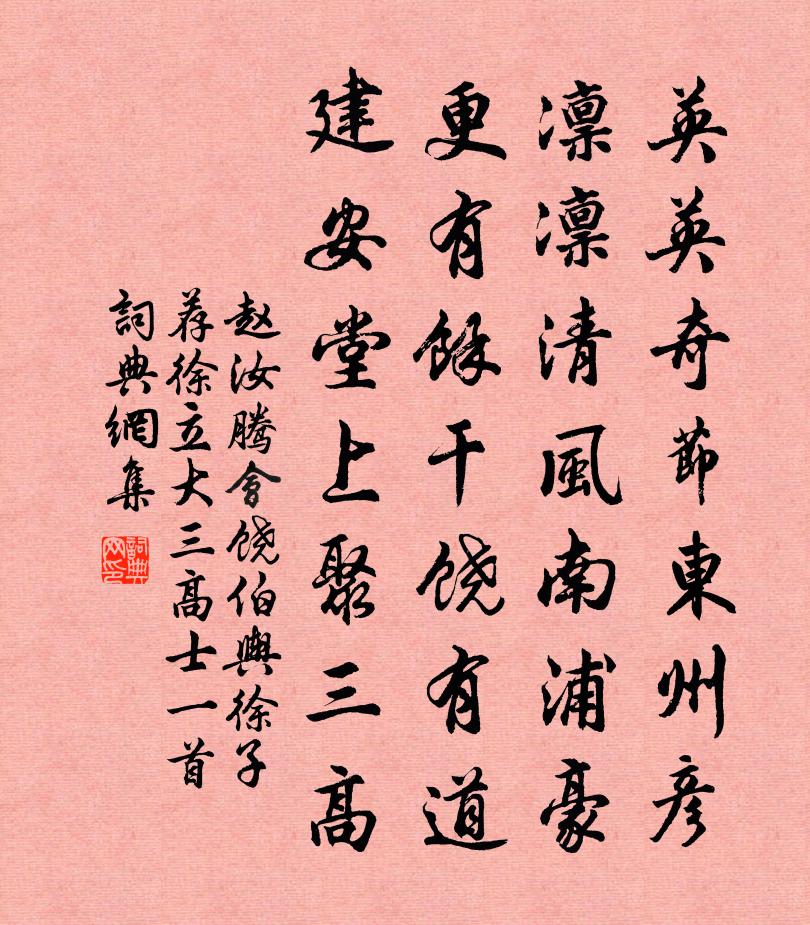 英英奇節東州彦
凛凛清風南浦豪
更有餘干饶有道
建安堂上聚三高
赵汝騰會饶伯輿徐子
荐徐立大三高士一首
詞典網集
詞典網印